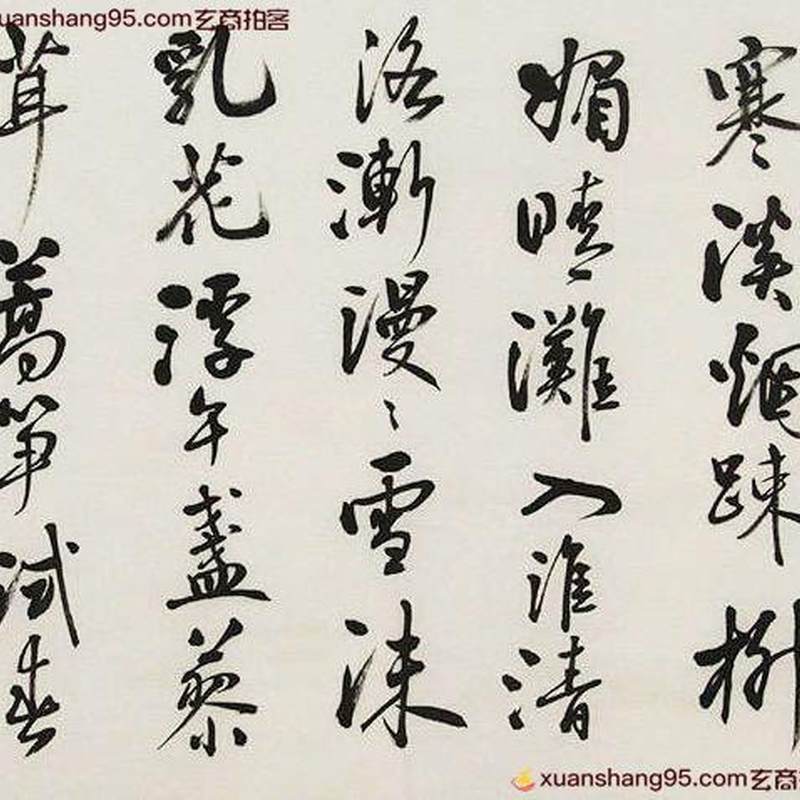 uanshang95.com玄商拍客
寒淡烟踈柳
媚晴灘入淮清
洛漸漫〻雪沫
乳花浮午盞蓼
茸蒿笋試春
xuanshang95.com玄商